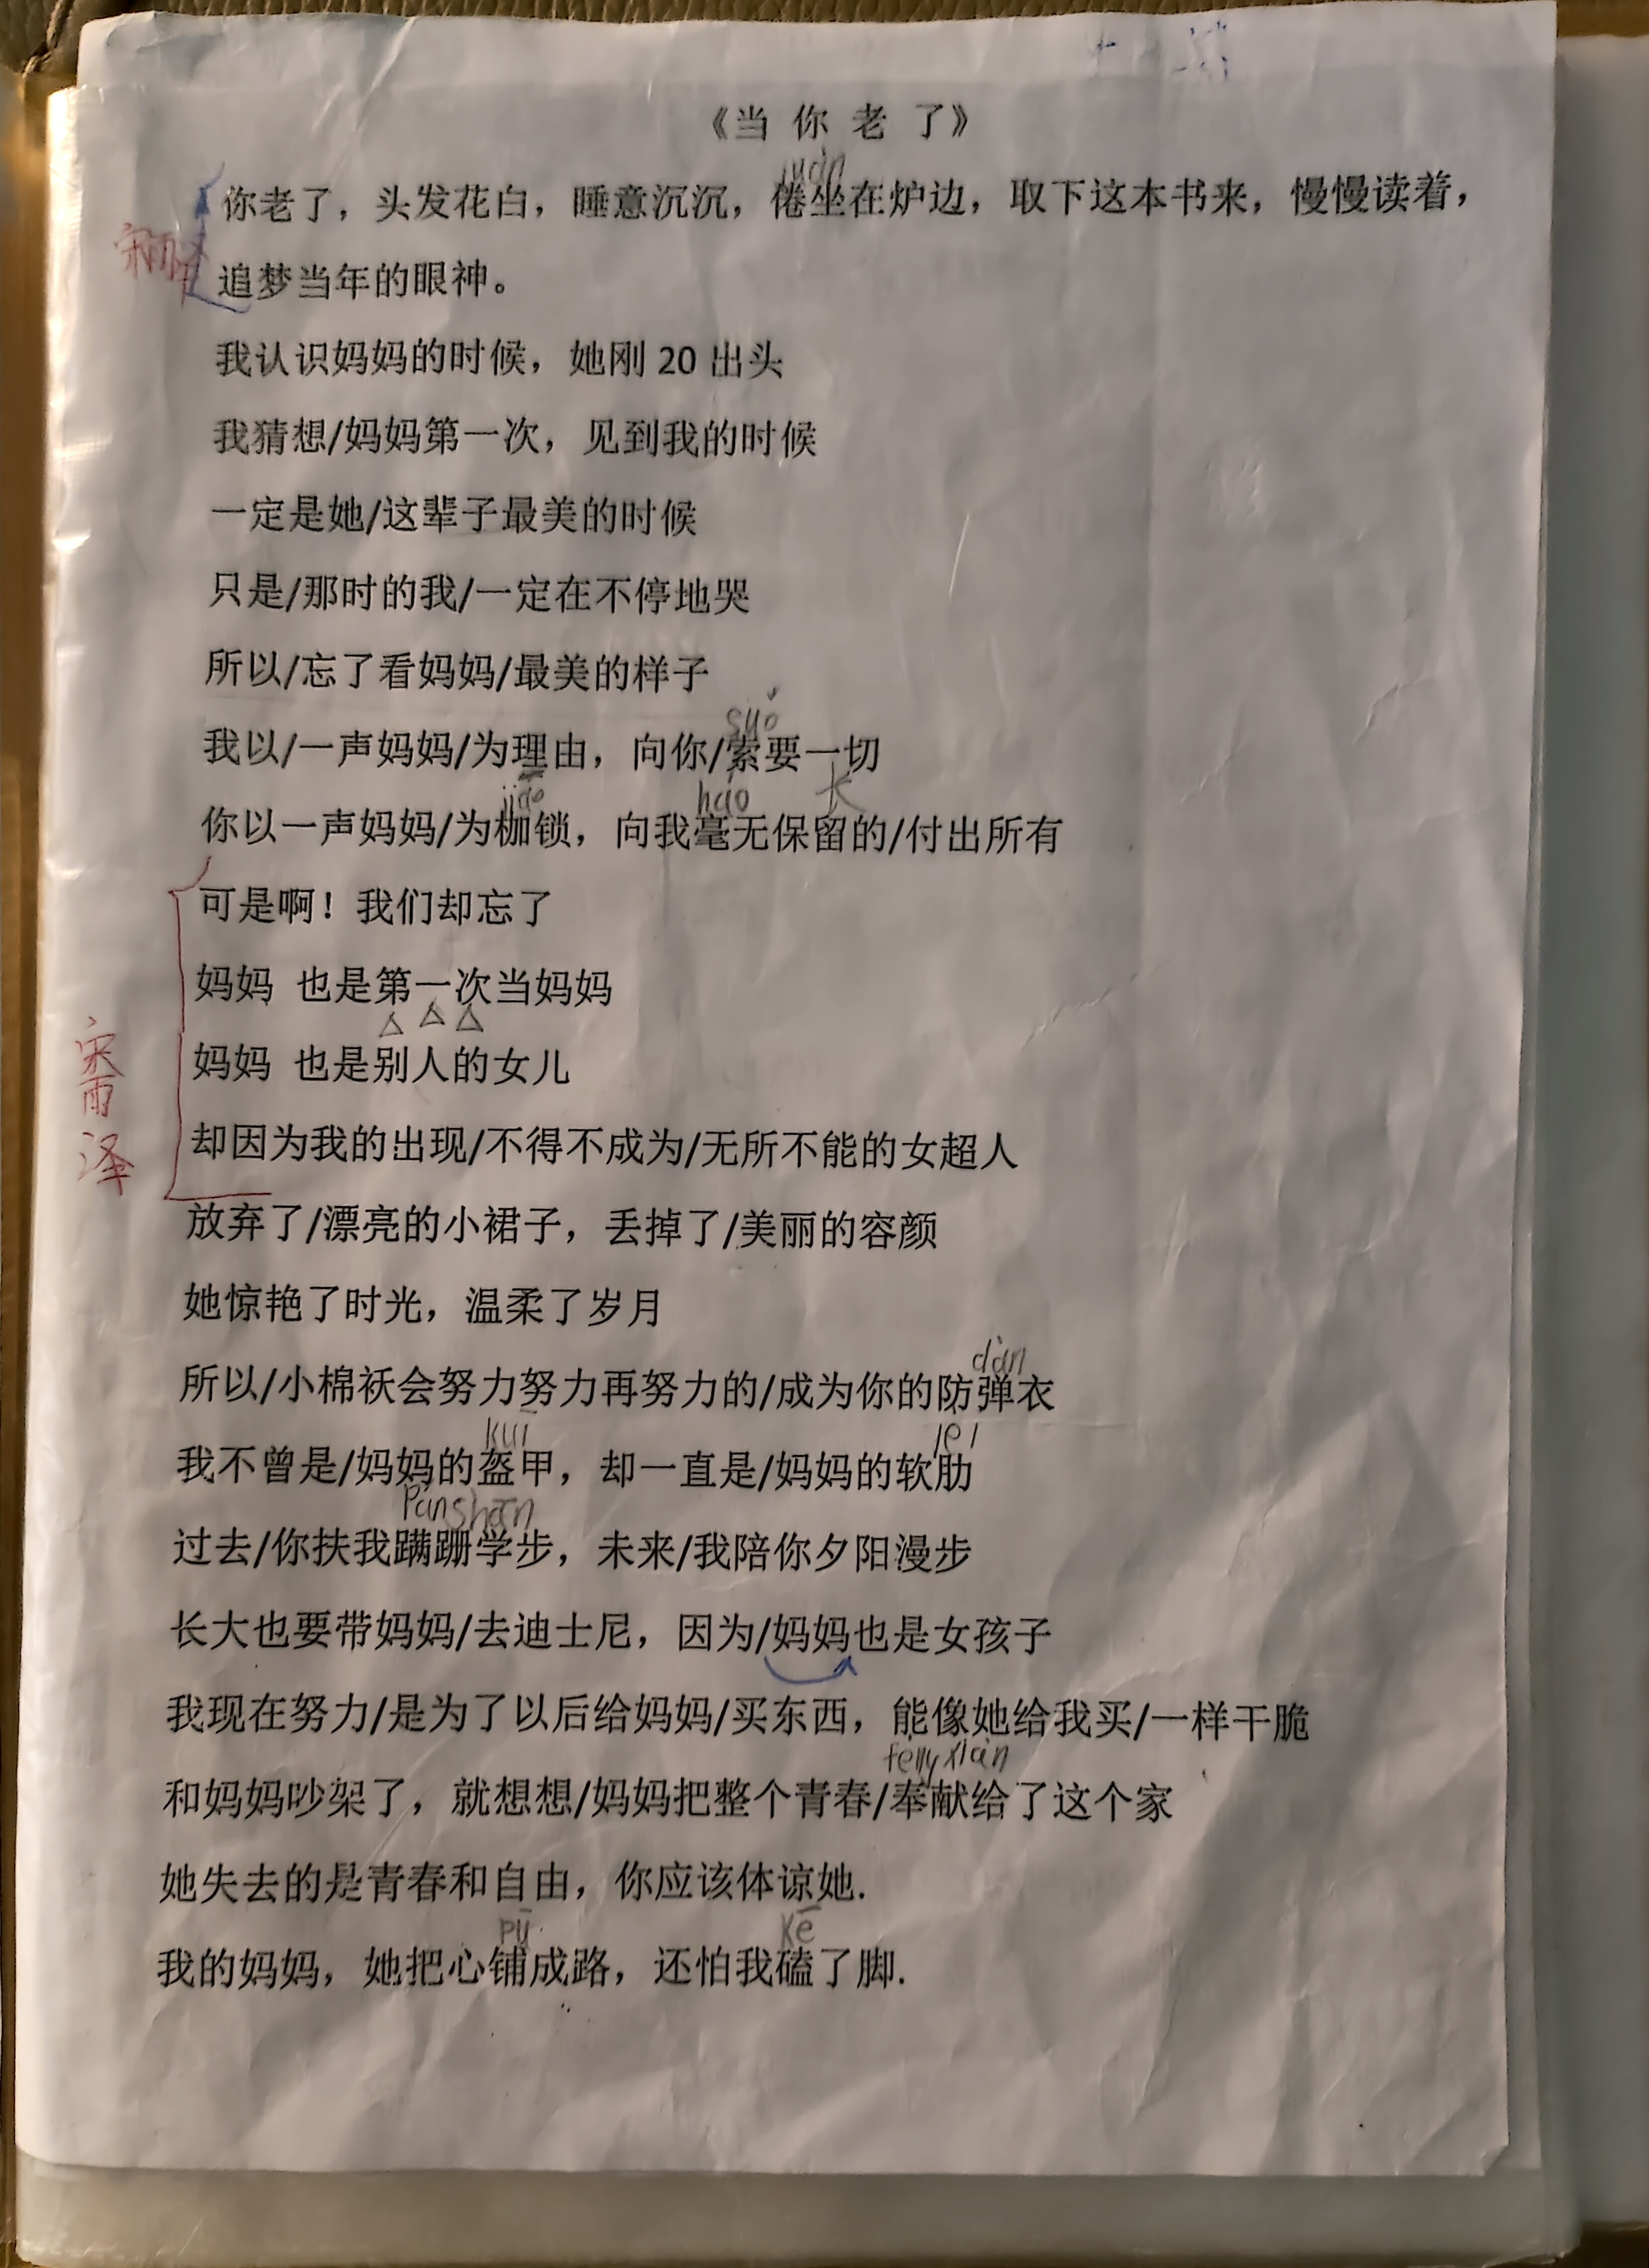 《当 你 老 了》
juàn
你老了，头发花白，睡意沉沉，倦坐在炉边，取下这本书来，慢慢读着，
追梦当年的眼神。
我认识妈妈的时候，她刚 20 出头
我猜想/妈妈第一次，见到我的时候
一定是她/这辈子最美的时候
只是/那时的我/一定在不停地哭
所以/忘了看妈妈/最美的样子
suǒ
我以/一声妈妈/为理由，向你/索要一切
háo 长
你以一声妈妈/为枷锁，向我毫无保留的/付出所有
可是啊！我们却忘了
妈妈 也是第一次当妈妈
△ △ △
妈妈 也是别人的女儿
宋雨泽
却因为我的出现/不得不成为/无所不能的女超人
放弃了/漂亮的小裙子，丢掉了/美丽的容颜
她惊艳了时光，温柔了岁月
dàn
所以/小棉袄会努力努力再努力的/成为你的防弹衣
kuī lèi
我不曾是/妈妈的盔甲，却一直是/妈妈的软肋
pánshān
过去/你扶我蹒跚学步，未来/我陪你夕阳漫步
长大也要带妈妈/去迪士尼，因为/妈妈也是女孩子
我现在努力/是为了以后给妈妈/买东西，能像她给我买/一样干脆
fèngxiàn
和妈妈吵架了，就想想/妈妈把整个青春/奉献给了这个家
她失去的是青春和自由，你应该体谅她.
pū kē
我的妈妈，她把心铺成路，还怕我磕了脚.